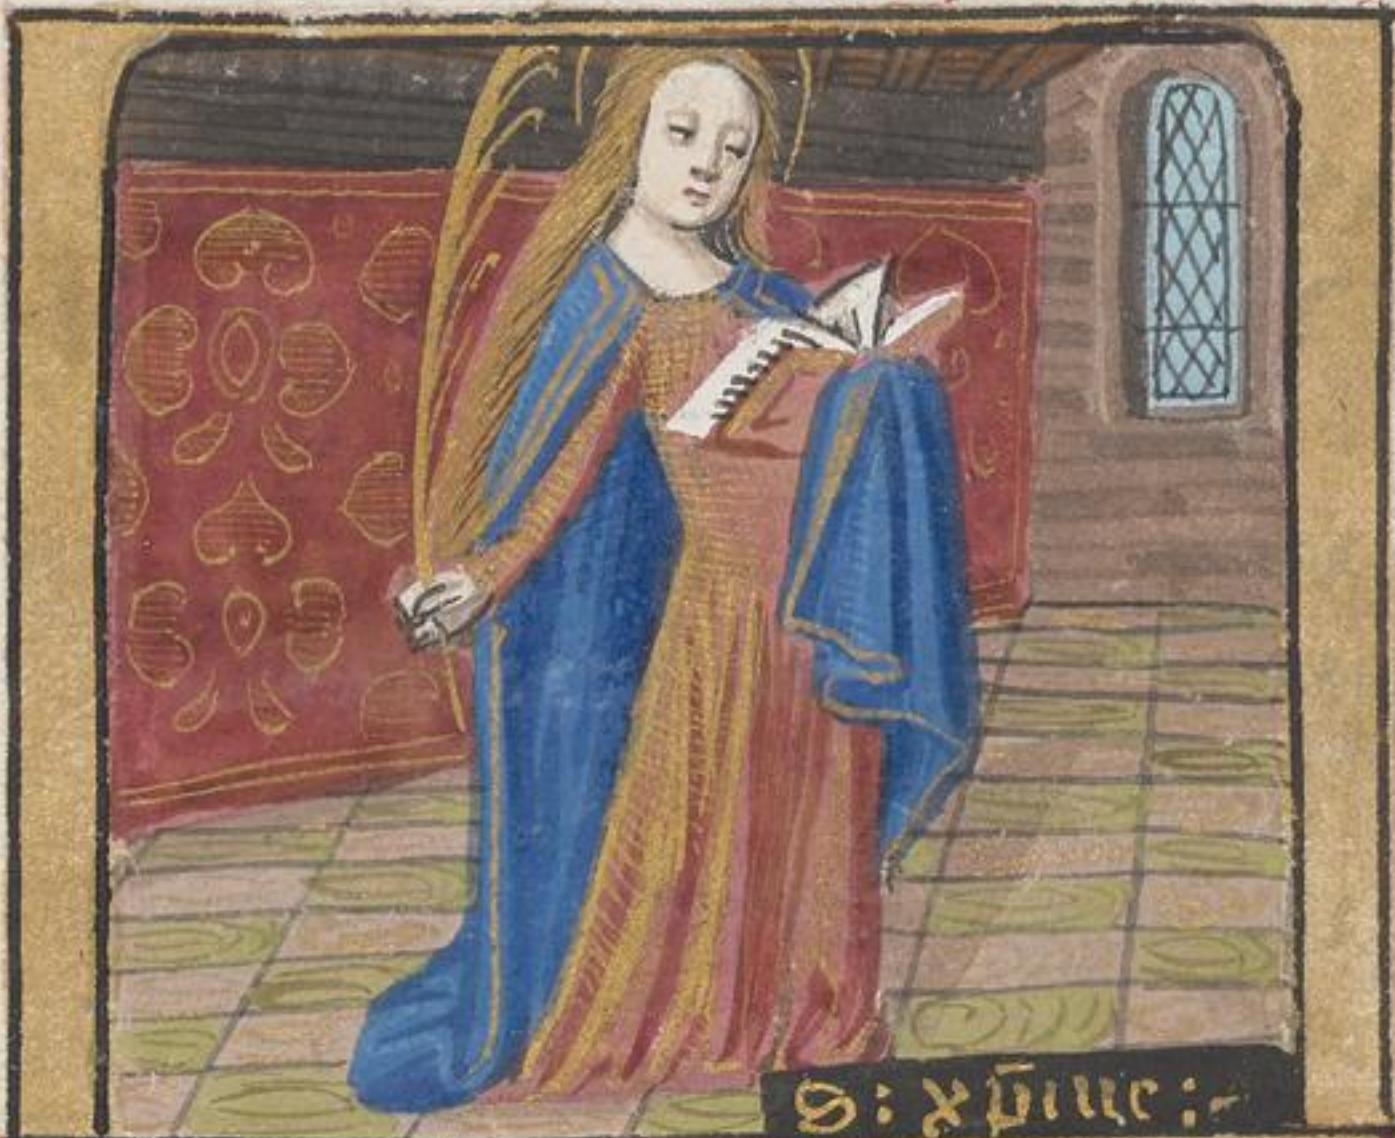 S : xp̄ine :